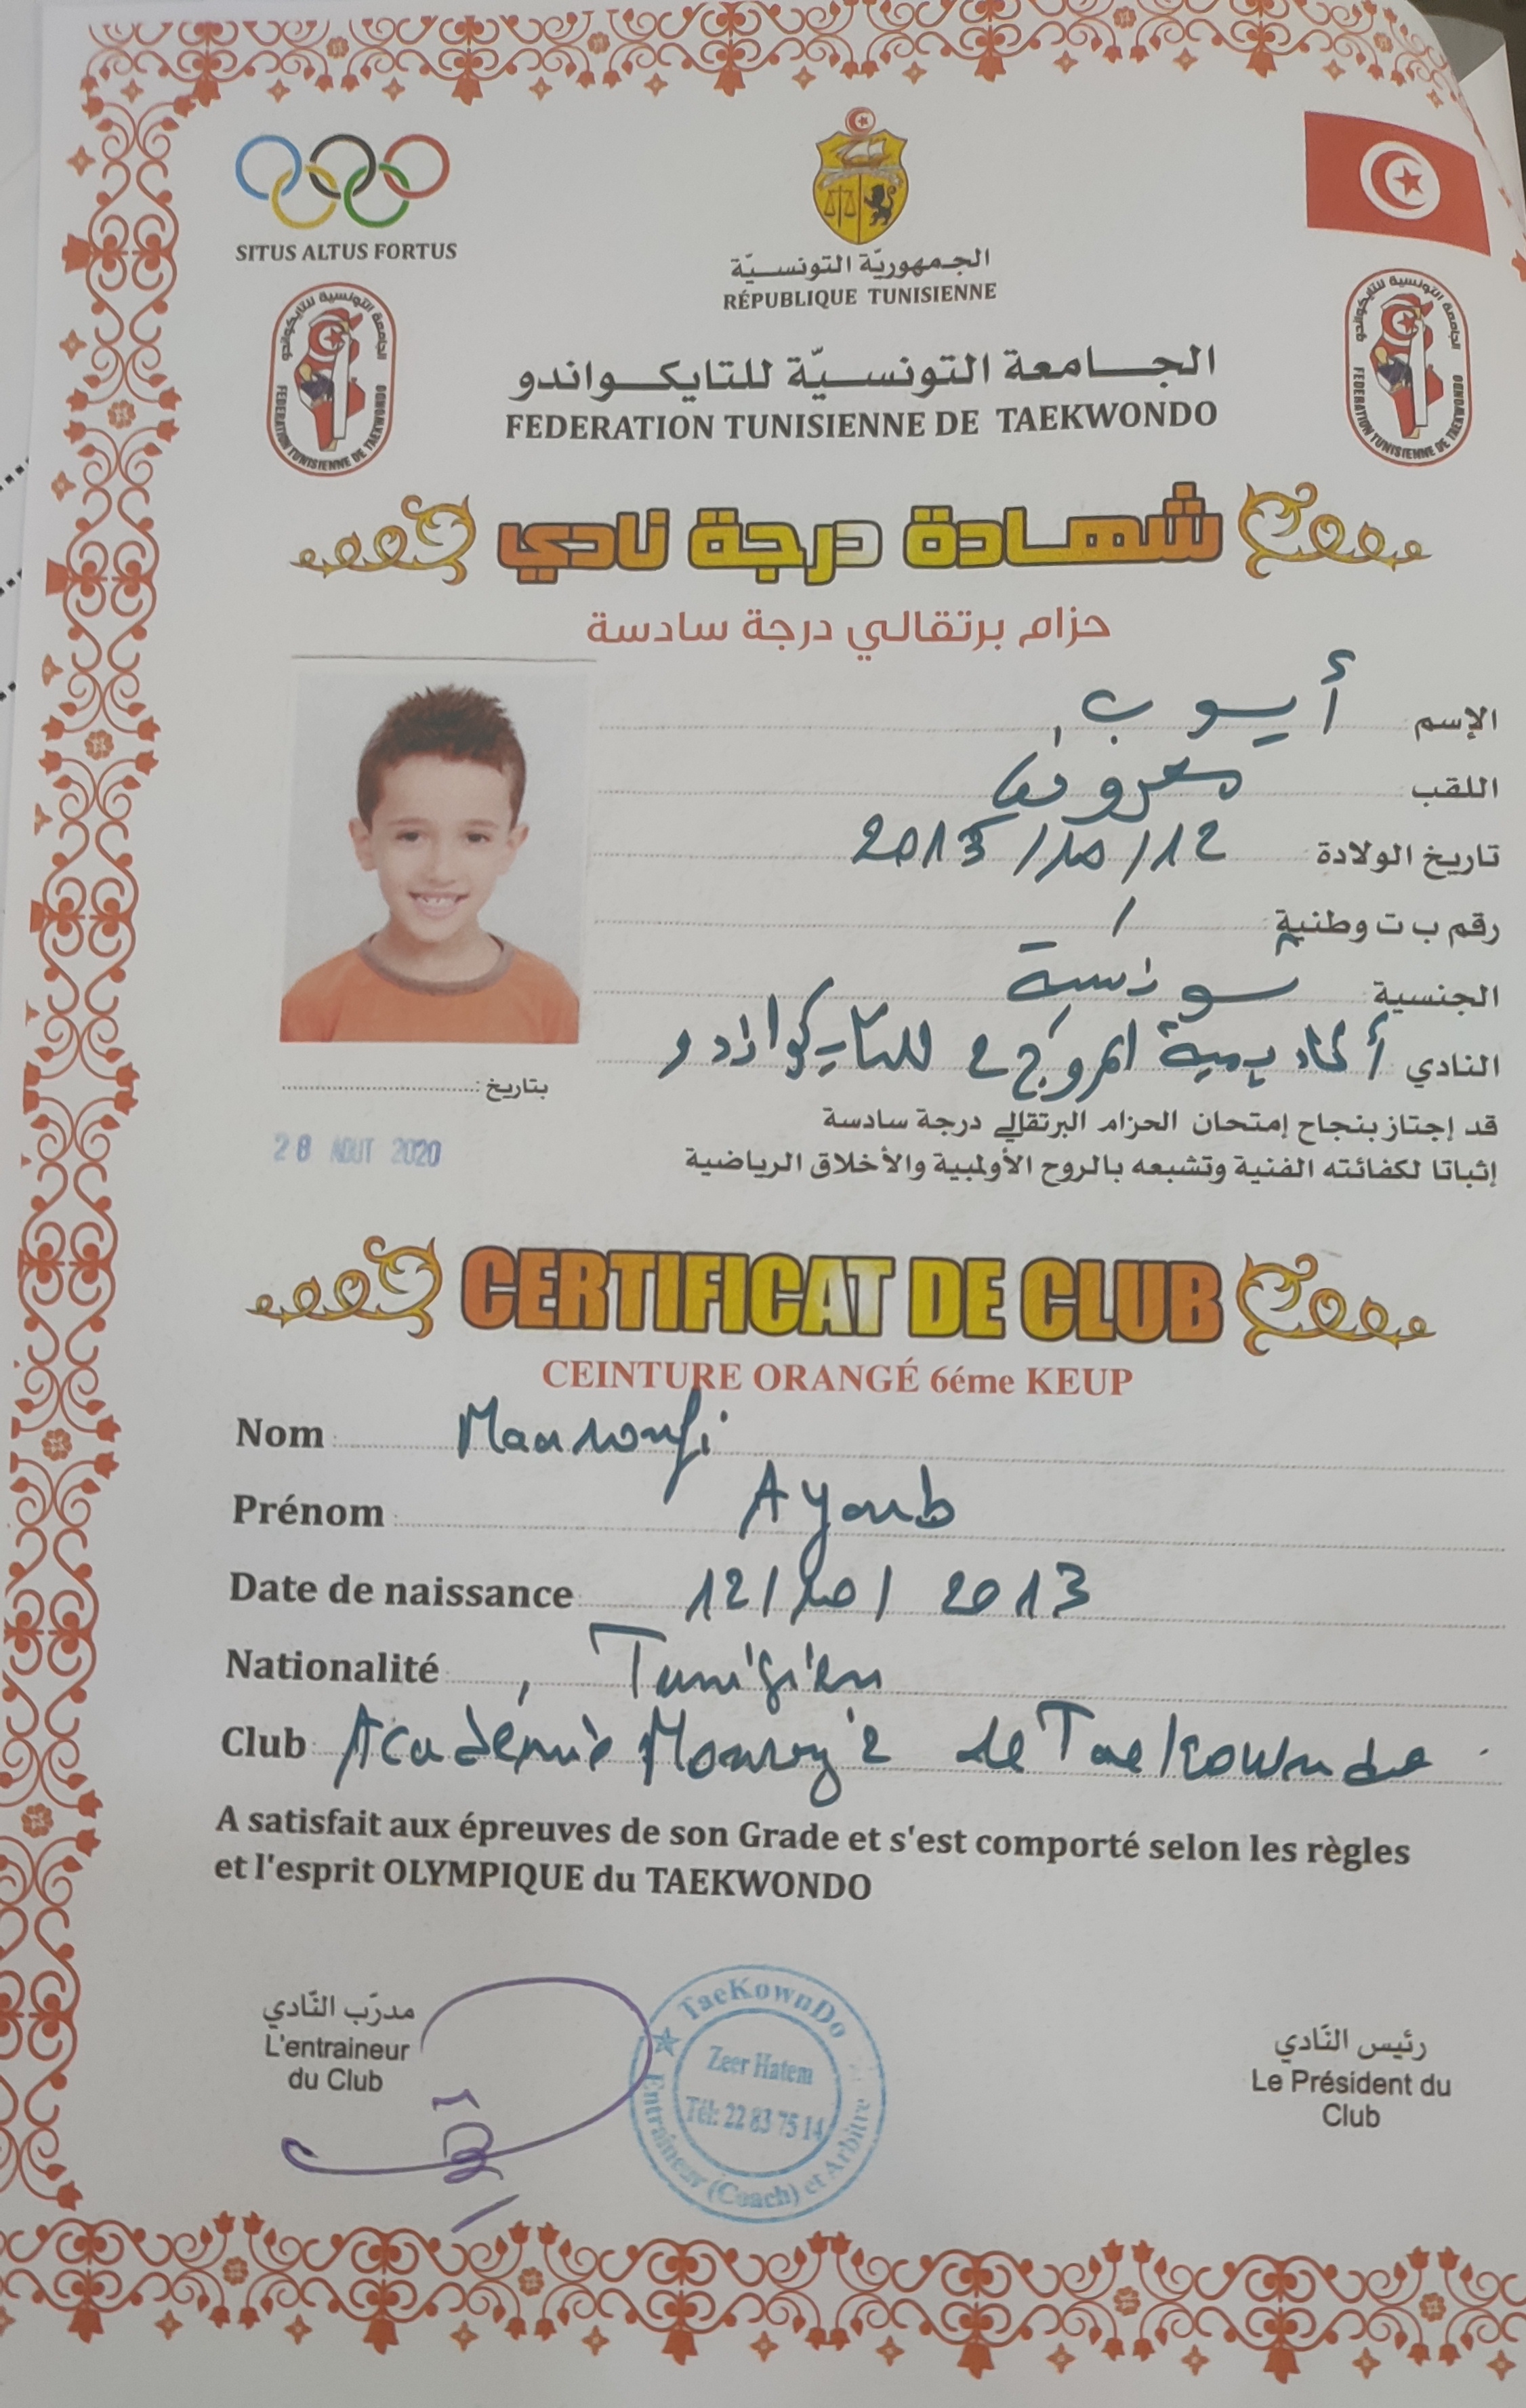 SITUS ALTUS FORTUS
الجمهوريّة التونسيّة
RÉPUBLIQUE TUNISIENNE
الجامعة التونسية للتايكواندو
FEDERATION TUNISIENNE DE TAEKWONDO
الجامعة التونسيّة للتايكواندو
FEDERATION TUNISIENNE DE TAEKWONDO
الجامعة التونسية للتايكواندو
FEDERATION TUNISIENNE DE TAEKWONDO
شهادة درجة نادي
حزام برتقالي درجة سادسة
الإسم أيوب
اللقب معروفي
تاريخ الولادة 12/10/2013
رقم ب ت وطنية /
الجنسية تونسية
النادي أكاديمية المروج 2 للتايكواندو
بتاريخ :
28 AOUT 2020
قد إجتاز بنجاح إمتحان الحزام البرتقالي درجة سادسة
إثباتا لكفائته الفنية وتشبعه بالروح الأولمبية والأخلاق الرياضية
CERTIFICAT DE CLUB
CEINTURE ORANGÉ 6éme KEUP
Nom Maaroufi
Prénom Ayoub
Date de naissance 12/10/2013
Nationalité Tunisien
Club Académie Mourouj 2 de Taekowndo
A satisfait aux épreuves de son Grade et s'est comporté selon les règles
et l'esprit OLYMPIQUE du TAEKWONDO
مدرّب النّادي
L'entraineur
du Club
TaeKownDo
Zeer Hatem
Tél: 22 83 75 14
Entraîneur (Coach) et Arbitre
رئيس النّادي
Le Président du
Club